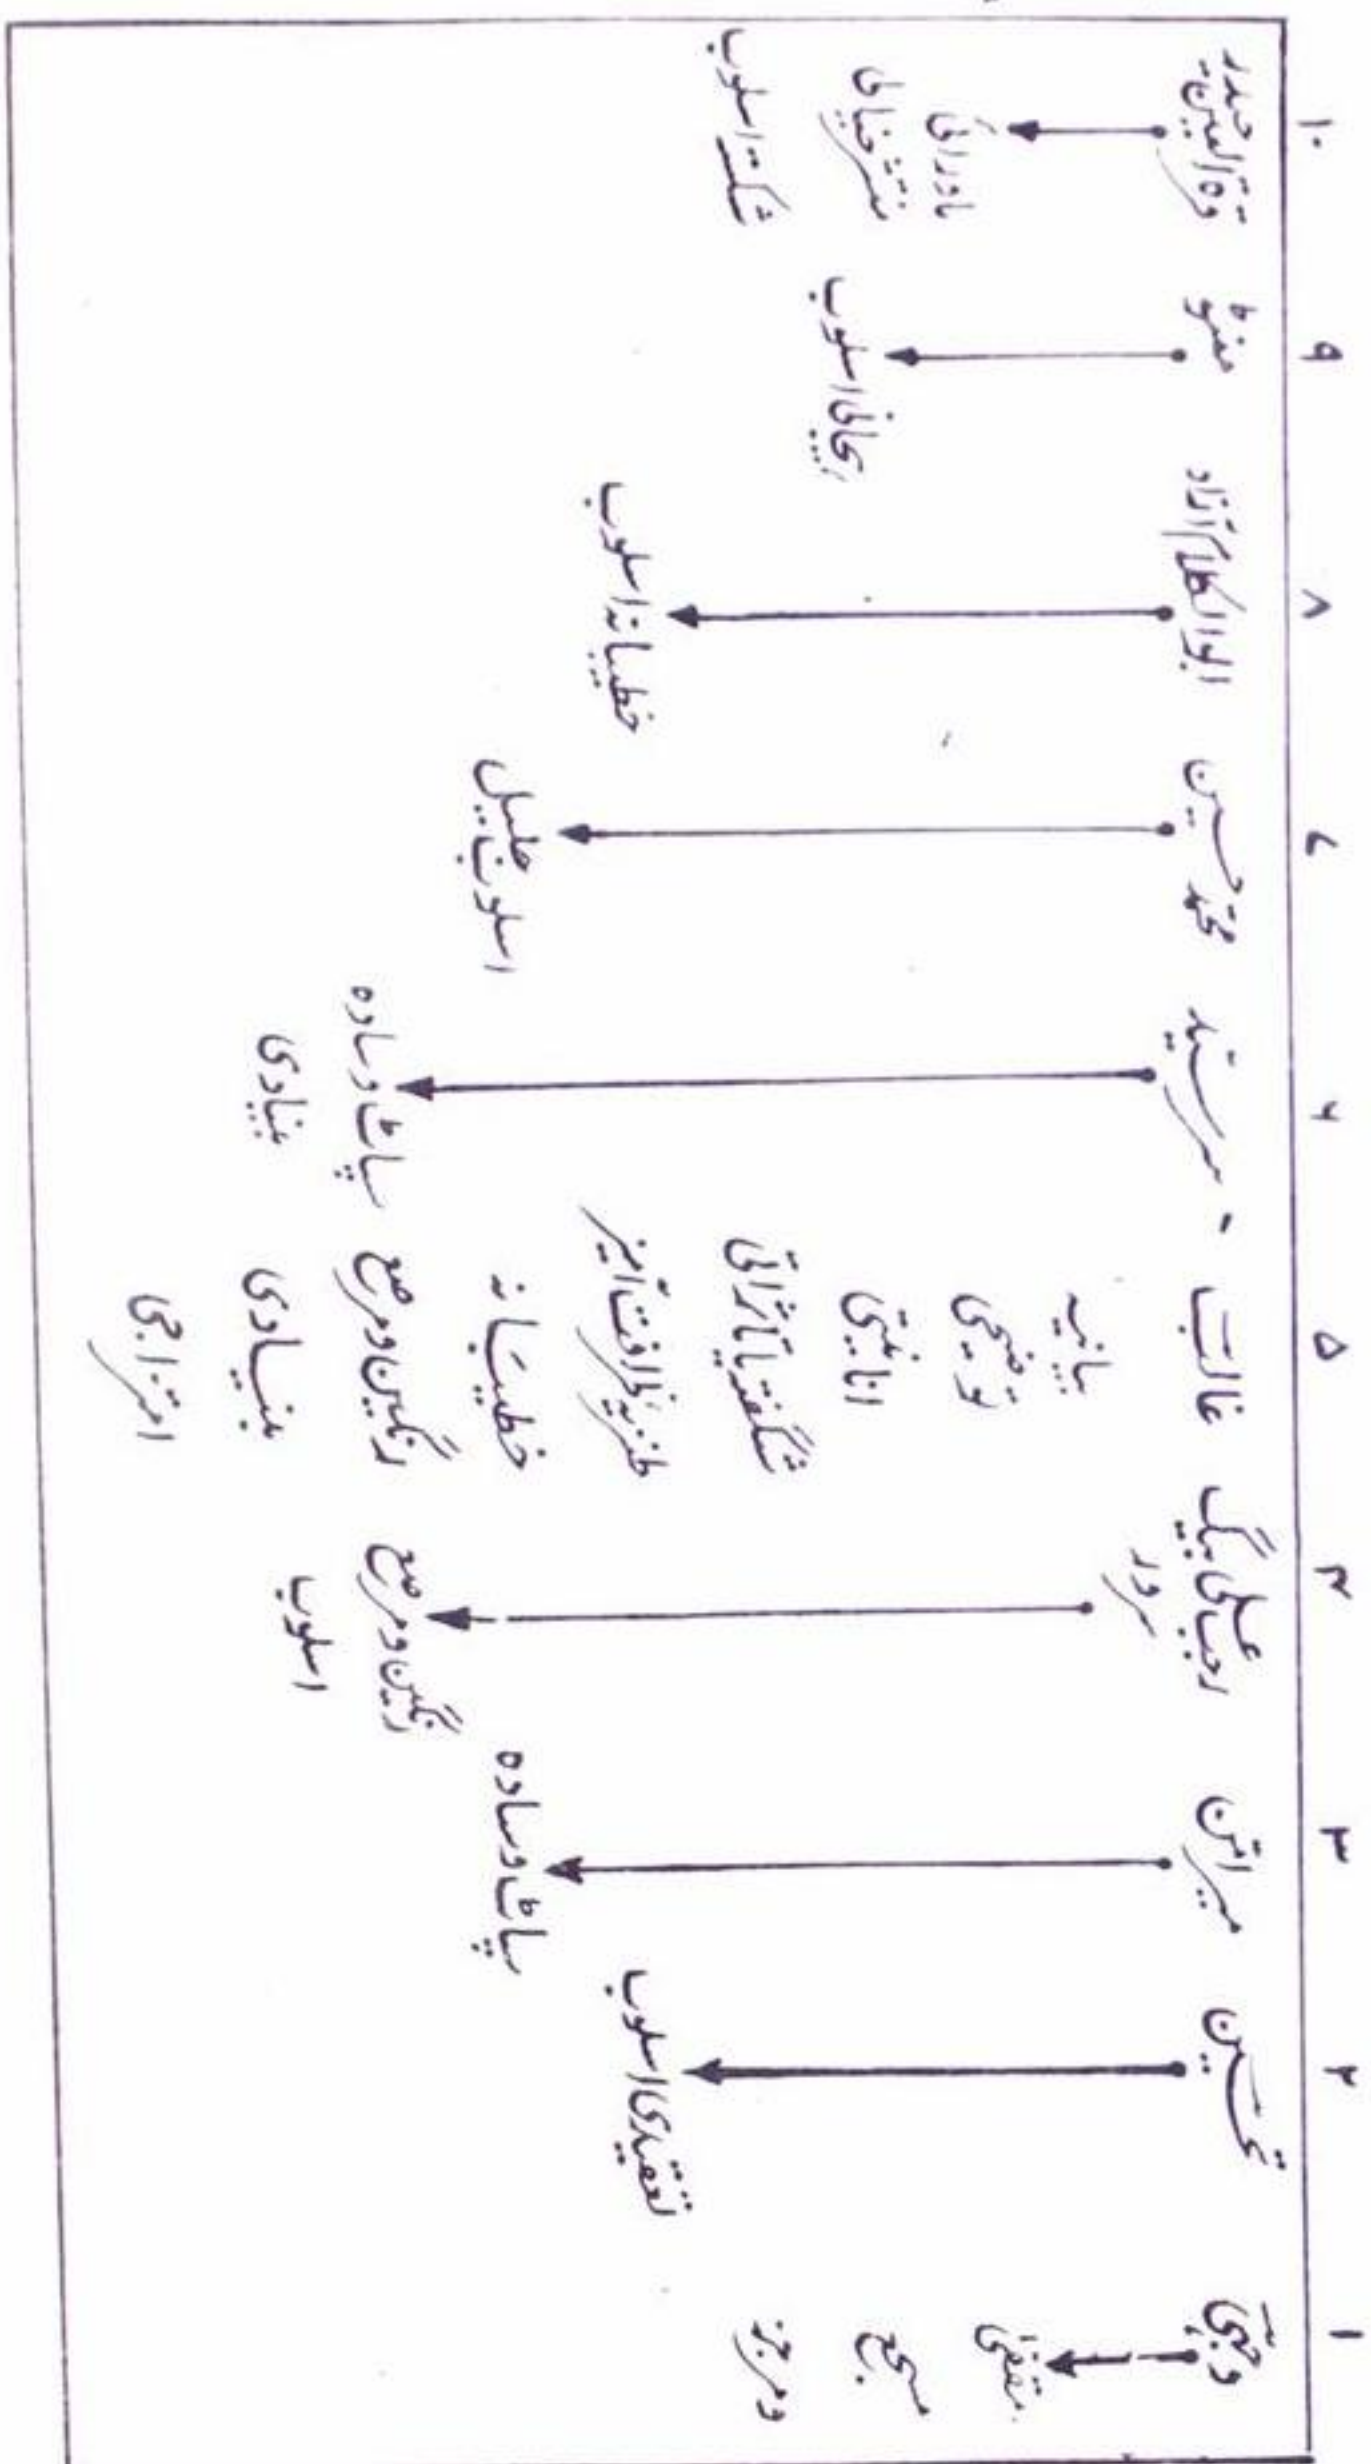 ۱
وجہی
مقفیٰ
مسجع
و مرجز
۲
تحسین
تقصیدی اسلوب
۳
میر امّن
سپاٹ و سادہ
۴
رجب علی بیگ
سرور
رنگین و مرصع
اسلوب
۵
غالب
بیانیہ
توضیحی
انانیتی
شگفتہ یا تاثراتی
طنزیہ ظرافت آمیز
خطیبانہ
رنگین و مرصع
بنیادی
امتزاجی
۶
سرسیّد
سپاٹ و سادہ
بنیادی
۷
محمّد حسین
اسلوبِ جلیل
۸
ابوالکلام آزاد
خطیبانہ اسلوب
۹
منٹو
ہیجانی اسلوب
۱۰
قرۃ العین
حیدر
ماورائی
منتشر خیالی
شکستہ اسلوب